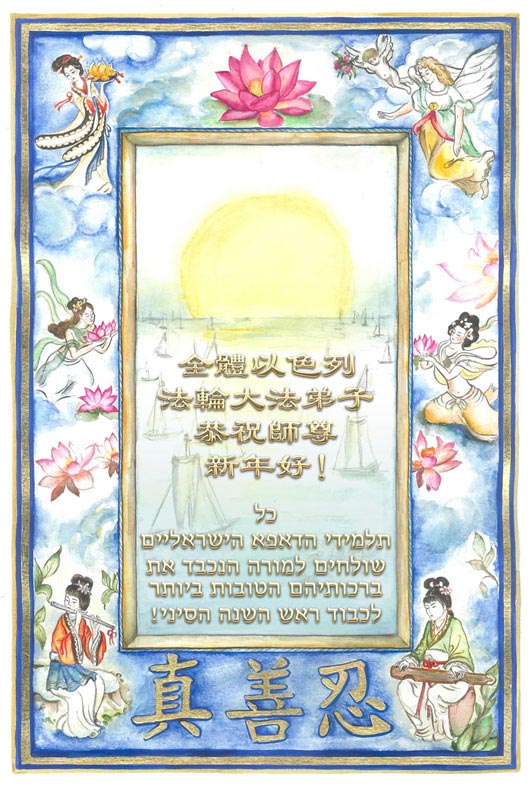 全體以色列
法輪大法弟子
恭祝師尊
新年好！
כל
תלמידי הדאפא הישראליים
שולחים למורה הנכבד את
ברכותיהם הטובות ביותר
לכבוד ראש השנה הסיני!
真善忍